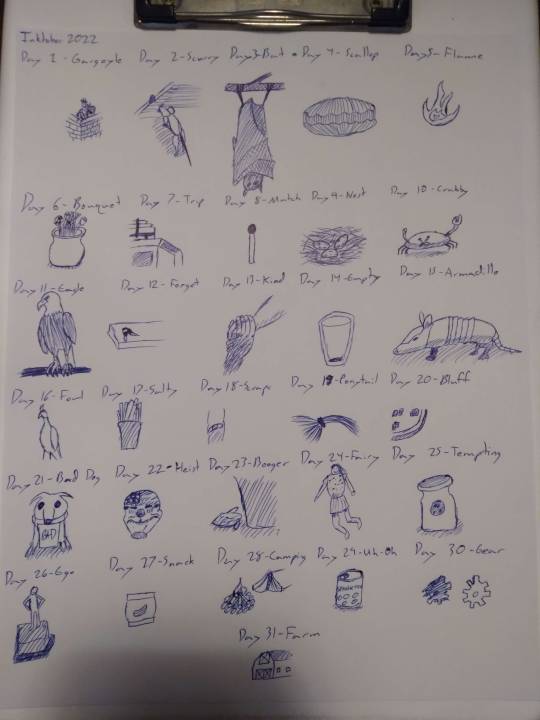 Inktober 2022
Day 1 - Gargoyle Day 2 - Scurry Day 3 - Bat Day 4 - Scallop Day 5 - Flame
Day 6 - Bouquet Day 7 - Trip Day 8 - Match Day 9 - Nest Day 10 - Crabby
Day 11 - Eagle Day 12 - Forget Day 13 - Kind Day 14 - Empty Day 15 - Armadillo
Day 16 - Fowl Day 17 - Salty Day 18 - Scrape Day 19 - Ponytail Day 20 - Bluff
Day 21 - Bad Dog Day 22 - Heist Day 23 - Booger Day 24 - Fairy Day 25 - Tempting
BAD
Day 26 - Ego Day 27 - Snack Day 28 - Camping Day 29 - Uh-oh Day 30 - Gear
Day 31 - Farm